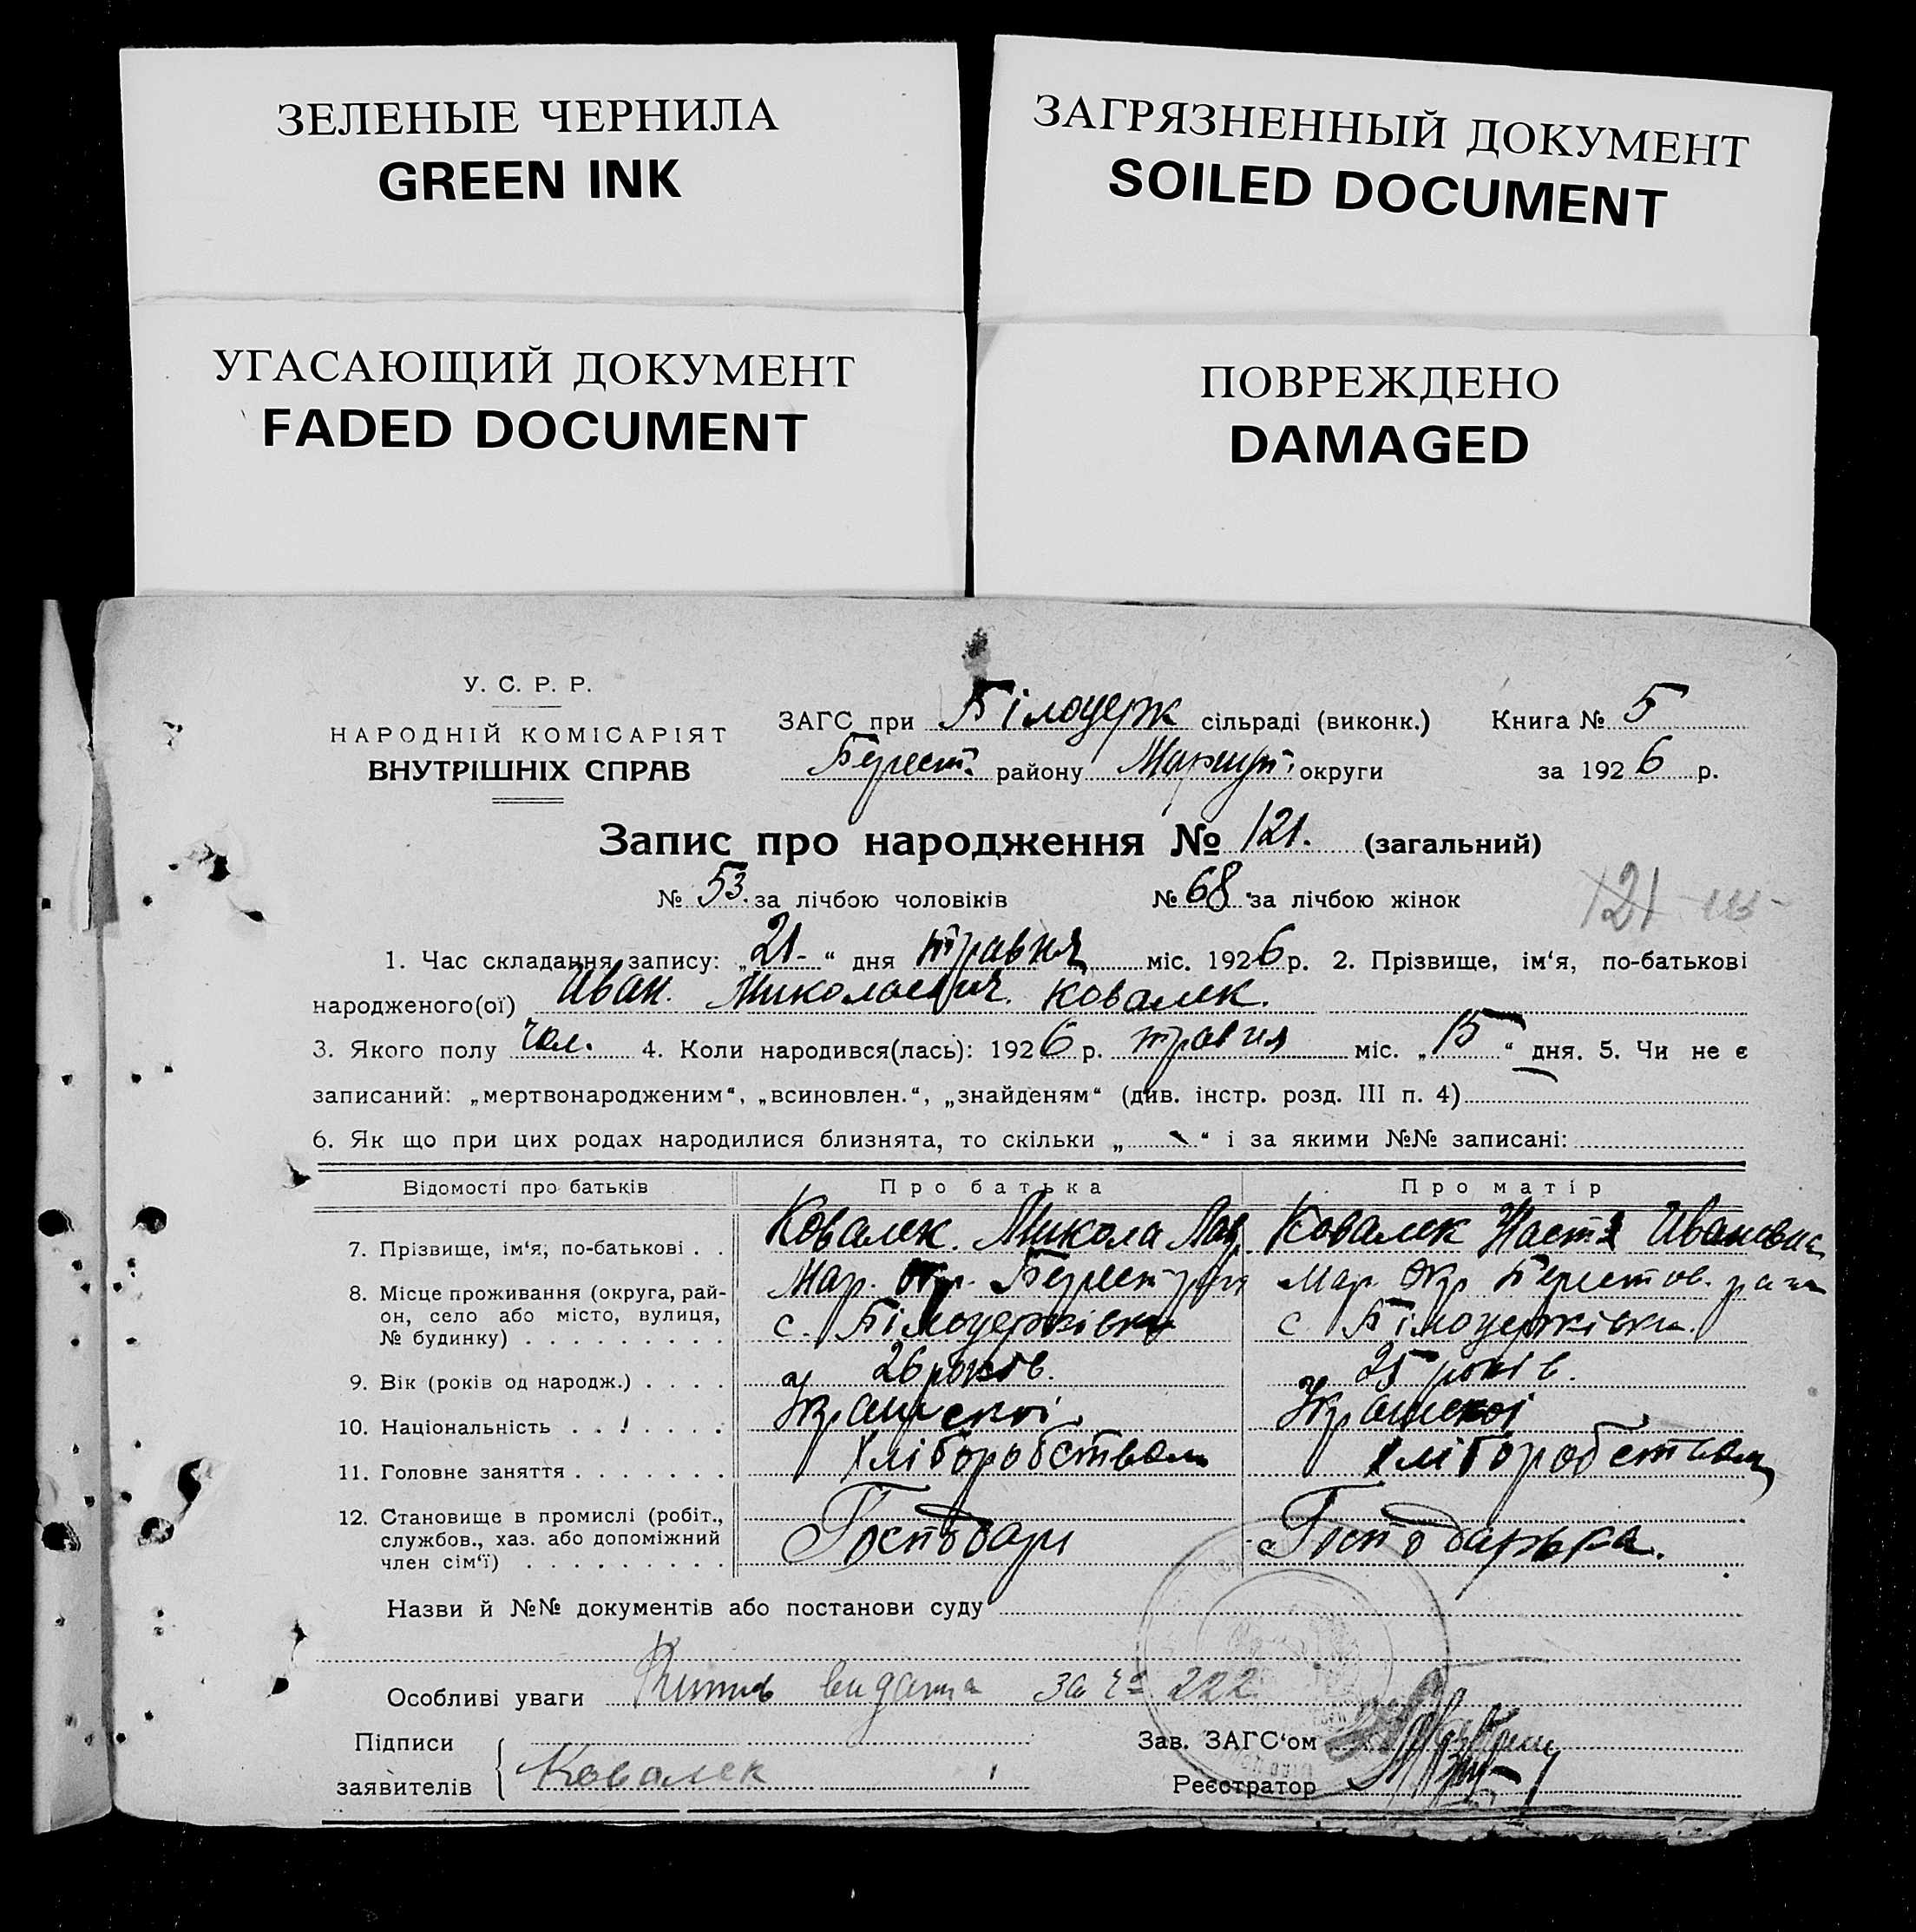 ЗЕЛЕНЫЕ ЧЕРНИЛА
GREEN INK
ЗАГРЯЗНЕННЫЙ ДОКУМЕНТ
SOILED DOCUMENT
УГАСАЮЩИЙ ДОКУМЕНТ
FADED DOCUMENT
ПОВРЕЖДЕНО
DAMAGED
У. С. Р. Р.
НАРОДНІЙ КОМІСАРІЯТ
ВНУТРІШНІХ СПРАВ
ЗАГС при Білоцерк сільраді (виконк.) Книга № 5
Берест. району Маріуп. округи за 1926 р.
Запис про народження № 121. (загальний)
№ 53. за лічбою чоловіків № 68 за лічбою жінок
121
1. Час складання запису: „21-“ дня травня міс. 1926 р. 2. Прізвище, ім‘я, по-батькові
народженого(ої) Иван. Миколаевич. Ковалек.
3. Якого полу Чол. 4. Коли народився(лась): 1926 р. травня міс. „15“ дня. 5. Чи не є
записаний: „мертвонародженим“, „всиновлен.“, „знайденям“ (див. інстр. розд. III п. 4)
6. Як що при цих родах народилися близнята, то скільки „ “ і за якими №№ записані:
Відомості про батьків Про батька Про матір
7. Прізвище, ім‘я, по-батькові . . Ковалек. Микола Ковалек Настя Ивановна
8. Місце проживання (округа, рай- Мар. Окр. Берест Мар. Окр Берестов. райн
он, село або місто, вулиця, с. Білоцерківка с Білоцерківка.
№ будинку)
9. Вік (років од народж.) 26 років. 25 років.
10. Національність Української Української
11. Головне заняття Хліборобством Хліборобством
12. Становище в промислі (робіт.,
службов., хаз. або допоміжний Господарь Господарька.
член сім‘ї)
Назви й №№ документів або постанови суду
Особливі уваги видана за № 222
Підписи Зав. ЗАГС‘ом
заявителів Ковалек Реєстратор